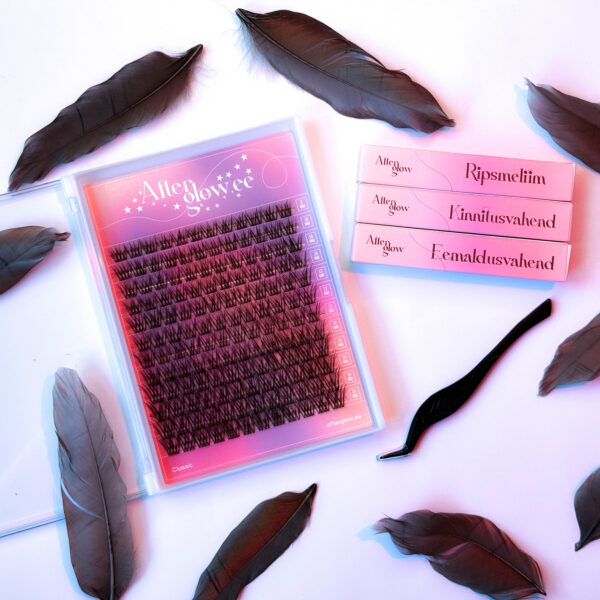 After
glow.ee
Classic
afterglow.ee
After
glow
Ripsmeliim
After
glow
Kinnitusvahend
After
glow
Eemaldusvahend